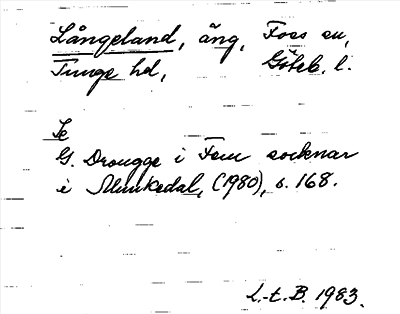 Långeland, äng, Foss sn,
Tunge hd, Göteb. l.
Se
G. Drougge i Fem socknar
i Munkedal, (1980), s. 168.
L-t. B. 1983.